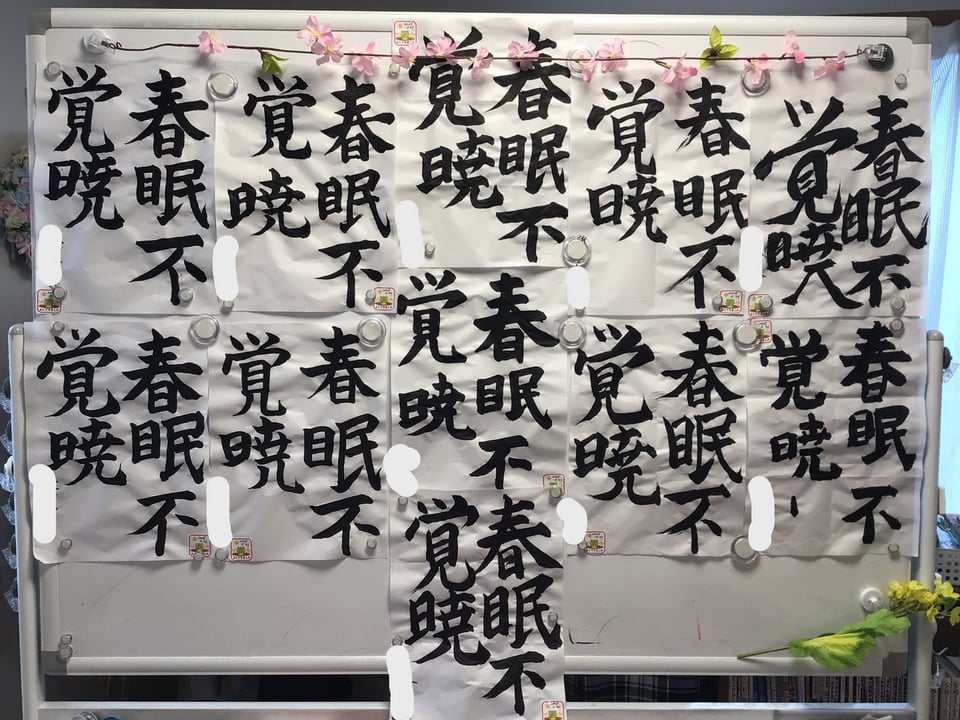 春眠不
覚暁
春眠不
覚暁
春眠不
覚暁
春眠不
覚暁
春眠不
覚暁
春眠不
覚暁
春眠不
覚暁
春眠不
覚暁
春眠不
覚暁
春眠不
覚暁
春眠不
覚暁